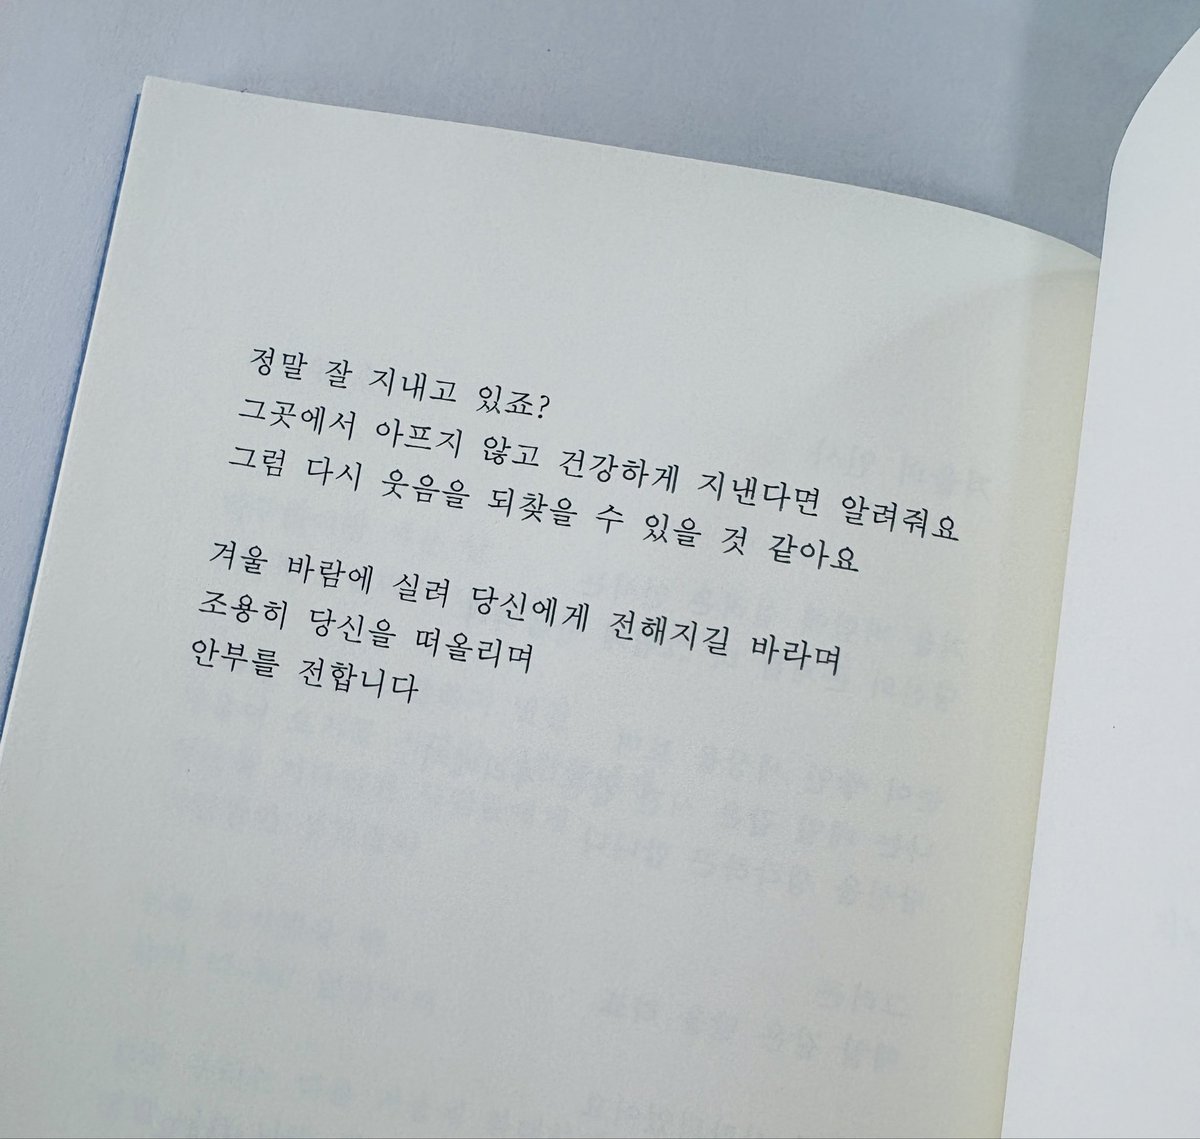 정말 잘 지내고 있죠?
그곳에서 아프지 않고 건강하게 지낸다면 알려줘요
그럼 다시 웃음을 되찾을 수 있을 것 같아요
겨울 바람에 실려 당신에게 전해지길 바라며
조용히 당신을 떠올리며
안부를 전합니다